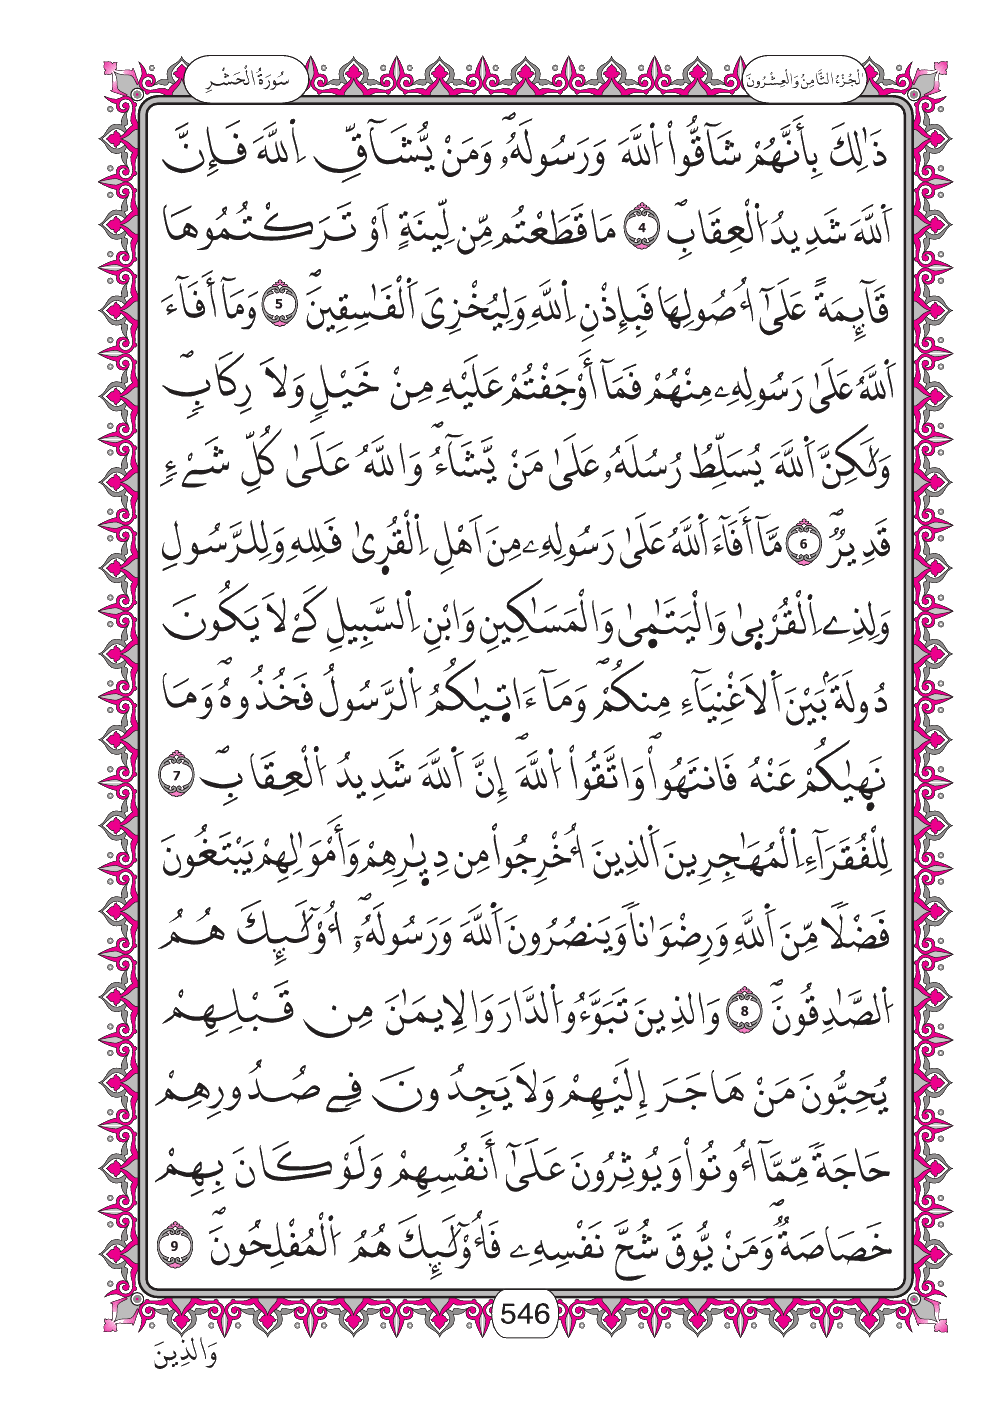 الْجُزْءُ الثَّامِنُ وَالْعِشْرُونَ
سُورَةُ الْحَشْرِ
ذَٰلِكَ بِأَنَّهُمْ شَآقُّواْ اُ۬للَّهَ وَرَسُولَهُۥۖ وَمَنْ يُّشَآقِّ اِ۬للَّهَ فَإِنَّ
اَ۬للَّهَ شَدِيدُ اُ۬لْعِقَابِۖ 4 مَا قَطَعْتُم مِّن لِّينَةٍ اَوْ تَرَكْتُمُوهَا
قَآئِمَةً عَلَىٰٓ أُصُولِهَا فَبِإِذْنِ اِ۬للَّهِ وَلِيُخْزِيَ اَ۬لْفَٰسِقِينَۖ 5 وَمَآ أَفَآءَ
اَ۬للَّهُ عَلَىٰ رَسُولِهِۦ مِنْهُمْ فَمَآ أَوْجَفْتُمْ عَلَيْهِ مِنْ خَيْلٍ وَلَا رِكَابٍۖ
وَلَٰكِنَّ اَ۬للَّهَ يُسَلِّطُ رُسُلَهُۥ عَلَىٰ مَنْ يَّشَآءُۖ وَاللَّهُ عَلَىٰ كُلِّ شَےْءٍ
قَدِيرٌۖ 6 مَّآ أَفَآءَ اَ۬للَّهُ عَلَىٰ رَسُولِهِۦ مِنَ اَهْلِ اِ۬لْقُر۪ىٰ فَلِلهِ وَلِلرَّسُولِ
وَلِذِے اِ۬لْقُرْب۪ىٰ وَالْيَتَٰم۪ىٰ وَالْمَسَٰكِينِ وَابْنِ اِ۬لسَّبِيلِ كَےْ لَا يَكُونَ
دُولَةَۢ بَيْنَ اَ۬لَاغْنِيَآءِ مِنكُمْۖ وَمَآ ءَات۪يٰكُمُ اُ۬لرَّسُولُ فَخُذُوهُۖ وَمَا
نَه۪يٰكُمْ عَنْهُ فَانتَهُواْۖ وَاتَّقُواْ اُ۬للَّهَۖ إِنَّ اَ۬للَّهَ شَدِيدُ اُ۬لْعِقَابِۖ 7
لِلْفُقَرَآءِ اِ۬لْمُهَٰجِرِينَ اَ۬لذِينَ أُخْرِجُواْ مِن دِيٰ۪رِهِمْ وَأَمْوَٰلِهِمْ يَبْتَغُونَ
فَضْلًا مِّنَ اَ۬للَّهِ وَرِضْوَٰناً وَيَنصُرُونَ اَ۬للَّهَ وَرَسُولَهُۥٓۖ أُوْلَٰٓئِكَ هُمُ
اُ۬لصَّٰدِقُونَۖ 8 وَالذِينَ تَبَوَّءُو اُ۬لدَّارَ وَالِايمَٰنَ مِن قَبْلِهِمْ
يُحِبُّونَ مَنْ هَاجَرَ إِلَيْهِمْ وَلَا يَجِدُونَ فِے صُدُورِهِمْ
حَاجَةً مِّمَّآ أُوتُواْ وَيُوثِرُونَ عَلَىٰٓ أَنفُسِهِمْ وَلَوْ كَانَ بِهِمْ
خَصَاصَةٌۖ وَمَنْ يُّوقَ شُحَّ نَفْسِهِۦ فَأُوْلَٰٓئِكَ هُمُ اُ۬لْمُفْلِحُونَۖ 9
546
وَالذِينَ